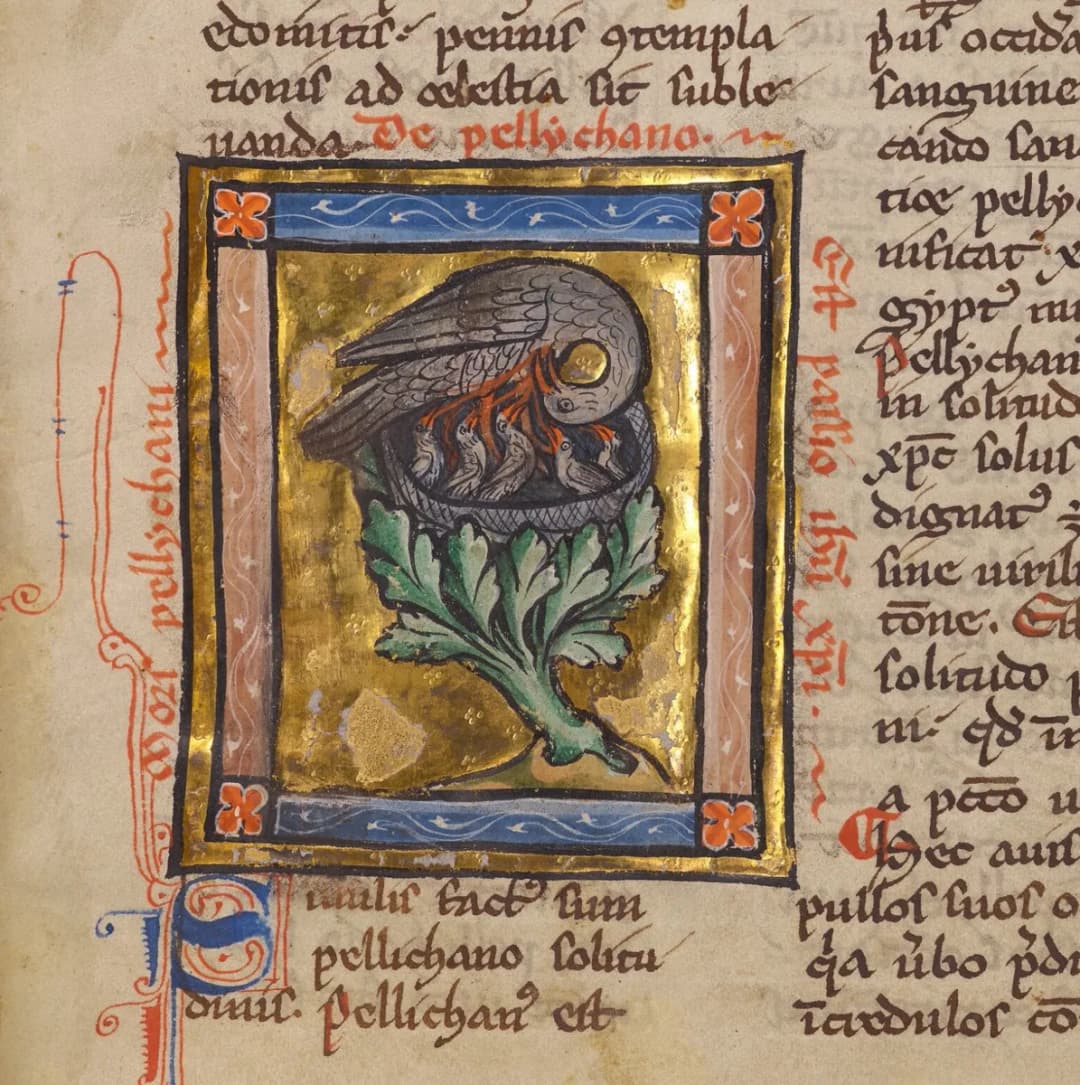 edomitis· pennis ꝯtempla
tionis ad celestia sit suble
uanda. De pellychano.
Mors pellychani
Est passio ihū xp̄i.
Similis fact᾽ sum
pellichano solitu
dinis. Pellichan᾽ est
sanguine
cando san
tice pelly
uificat x
gypt᾽ in
Pellychan
in solitud
xp̄c solus
dignat᾽
sine uirili
tōne. Es
solitudo p
ni. qd̄ in
a pctō u
Hec auis
pullos suos o
q̓a ūbo p̄di
īcredulos cō